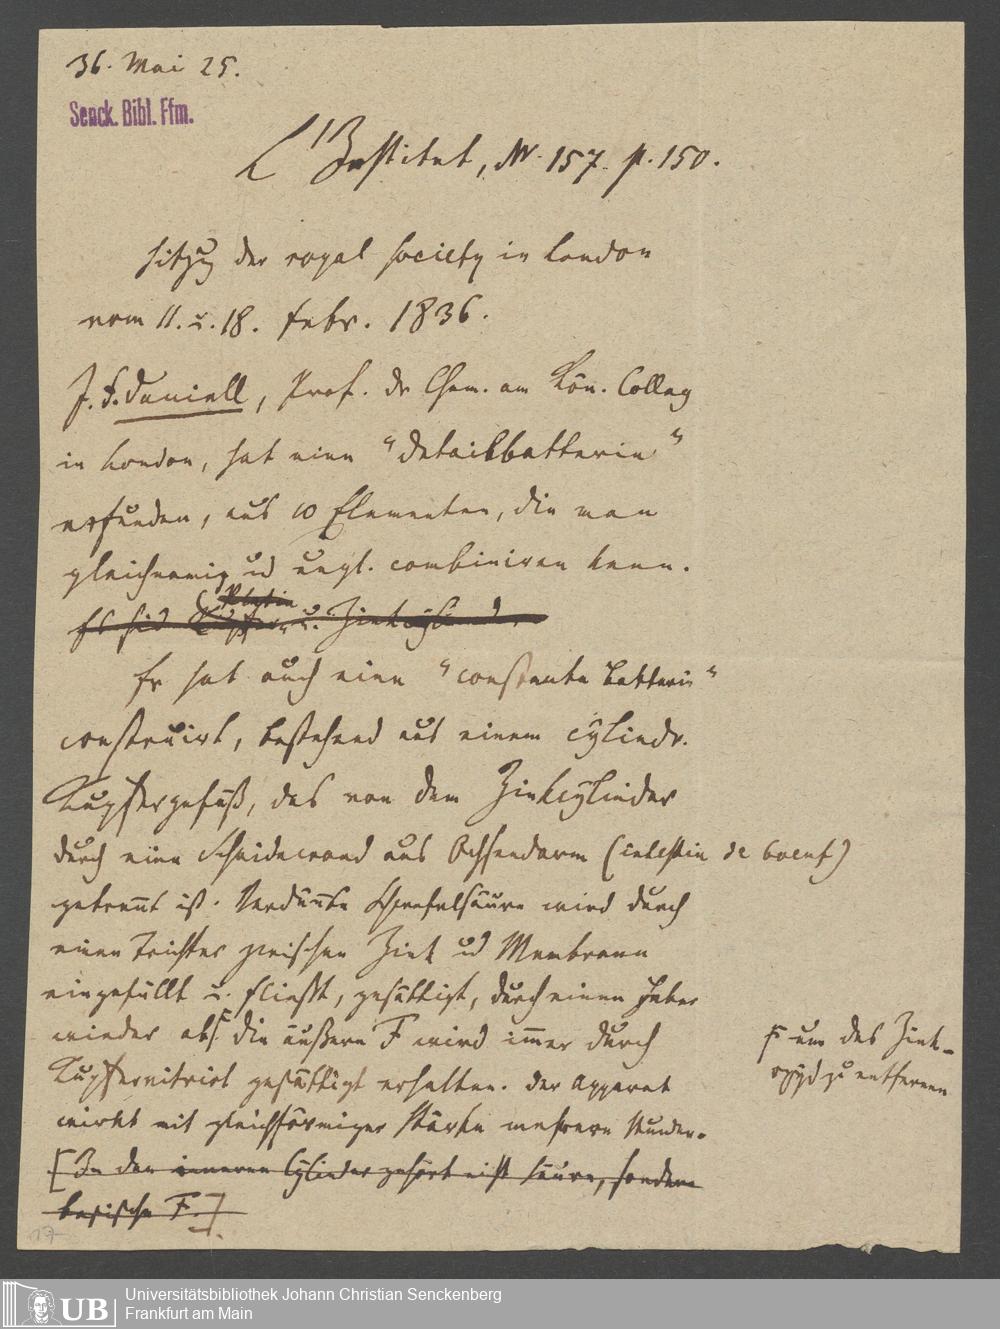 36. Mai 25.
Senck. Bibl. Ffm.
L'Institut, Nr. 157. p. 150.
Sitzg der royal society in London
vom 11. u. 18. Febr. 1836.
J. F. Daniell, Prof. der Chem. am Kön. Colleg
in London, hat eine "
erfunden, aus 10 Elementen, die man
gleichnamig ud ungl. combiniren kann.
Platin
Es sind Kupfer u. Zinkcylinder
Er hat auch eine "constante Batterie"
construirt, bestehend aus einem cylindr.
Kupfergefäß, das von dem Zinkcylinder
durch eine Scheidewand aus Ochsendarm (intestin de boeuf)
getrennt ist. Verdünnte Schwefelsäure wird durch
einen Trichter zwischen Zink ud Membrane
eingefüllt u. fließt, gesättigt, durch einen Heber
wieder ab die äußere F wird immer durch
um das Zink-
oxyd zu entfernen
Kupfernitriol gesättigt erhalten. Der Apparat
wirkt mit gleichförmiger Stärke mehrere Stunden.
[In den inneren Cylinder gehört nicht Säure, sondern
basische F.]
17
UB
Universitätsbibliothek Johann Christian Senckenberg
Frankfurt am Main